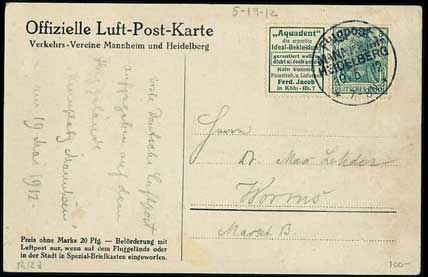 5-19-12
Offizielle Luft-Post-Karte
Verkehrs-Vereine Mannheim und Heidelberg
"Aquadent"
die erprobte
Ideal-Bekleidung
garantiert
dicht u.
Kein Gummi
Ferd. Jacob
in Köln-Rh. 7
Flugpost
HEIDELBERG
erste Deutsche Luftpost
aufgegeben auf dem
Flugplatz Mannheim
am 19 Mai 1912
Herrn
Dr. Max
Worms
Markt 13.
Preis ohne Marke 20 Pfg. — Beförderung mit
Luftpost nur, wenn auf dem Fluggelände oder
in der Stadt in Spezial-Briefkasten eingeworfen.
100-